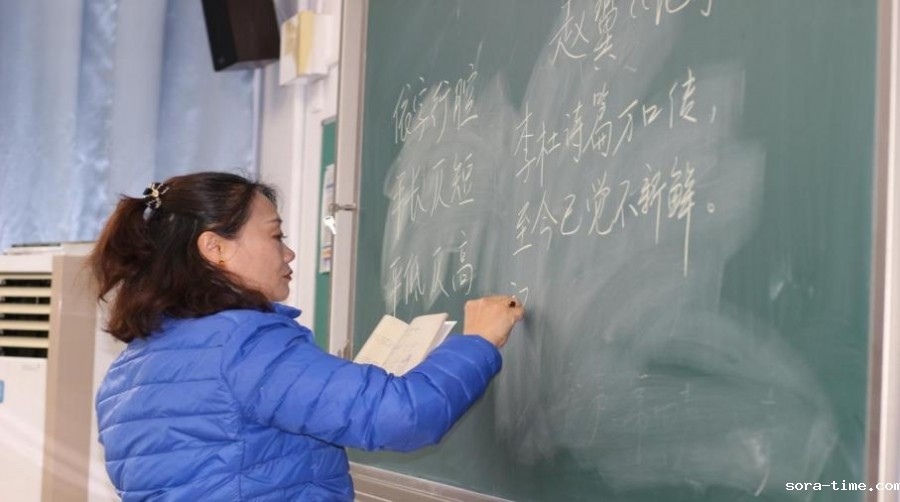 赵翼《论诗
依字行腔
平长仄短
平低仄高
李杜诗篇万口传，
至今已觉不新鲜。
sora-time.com